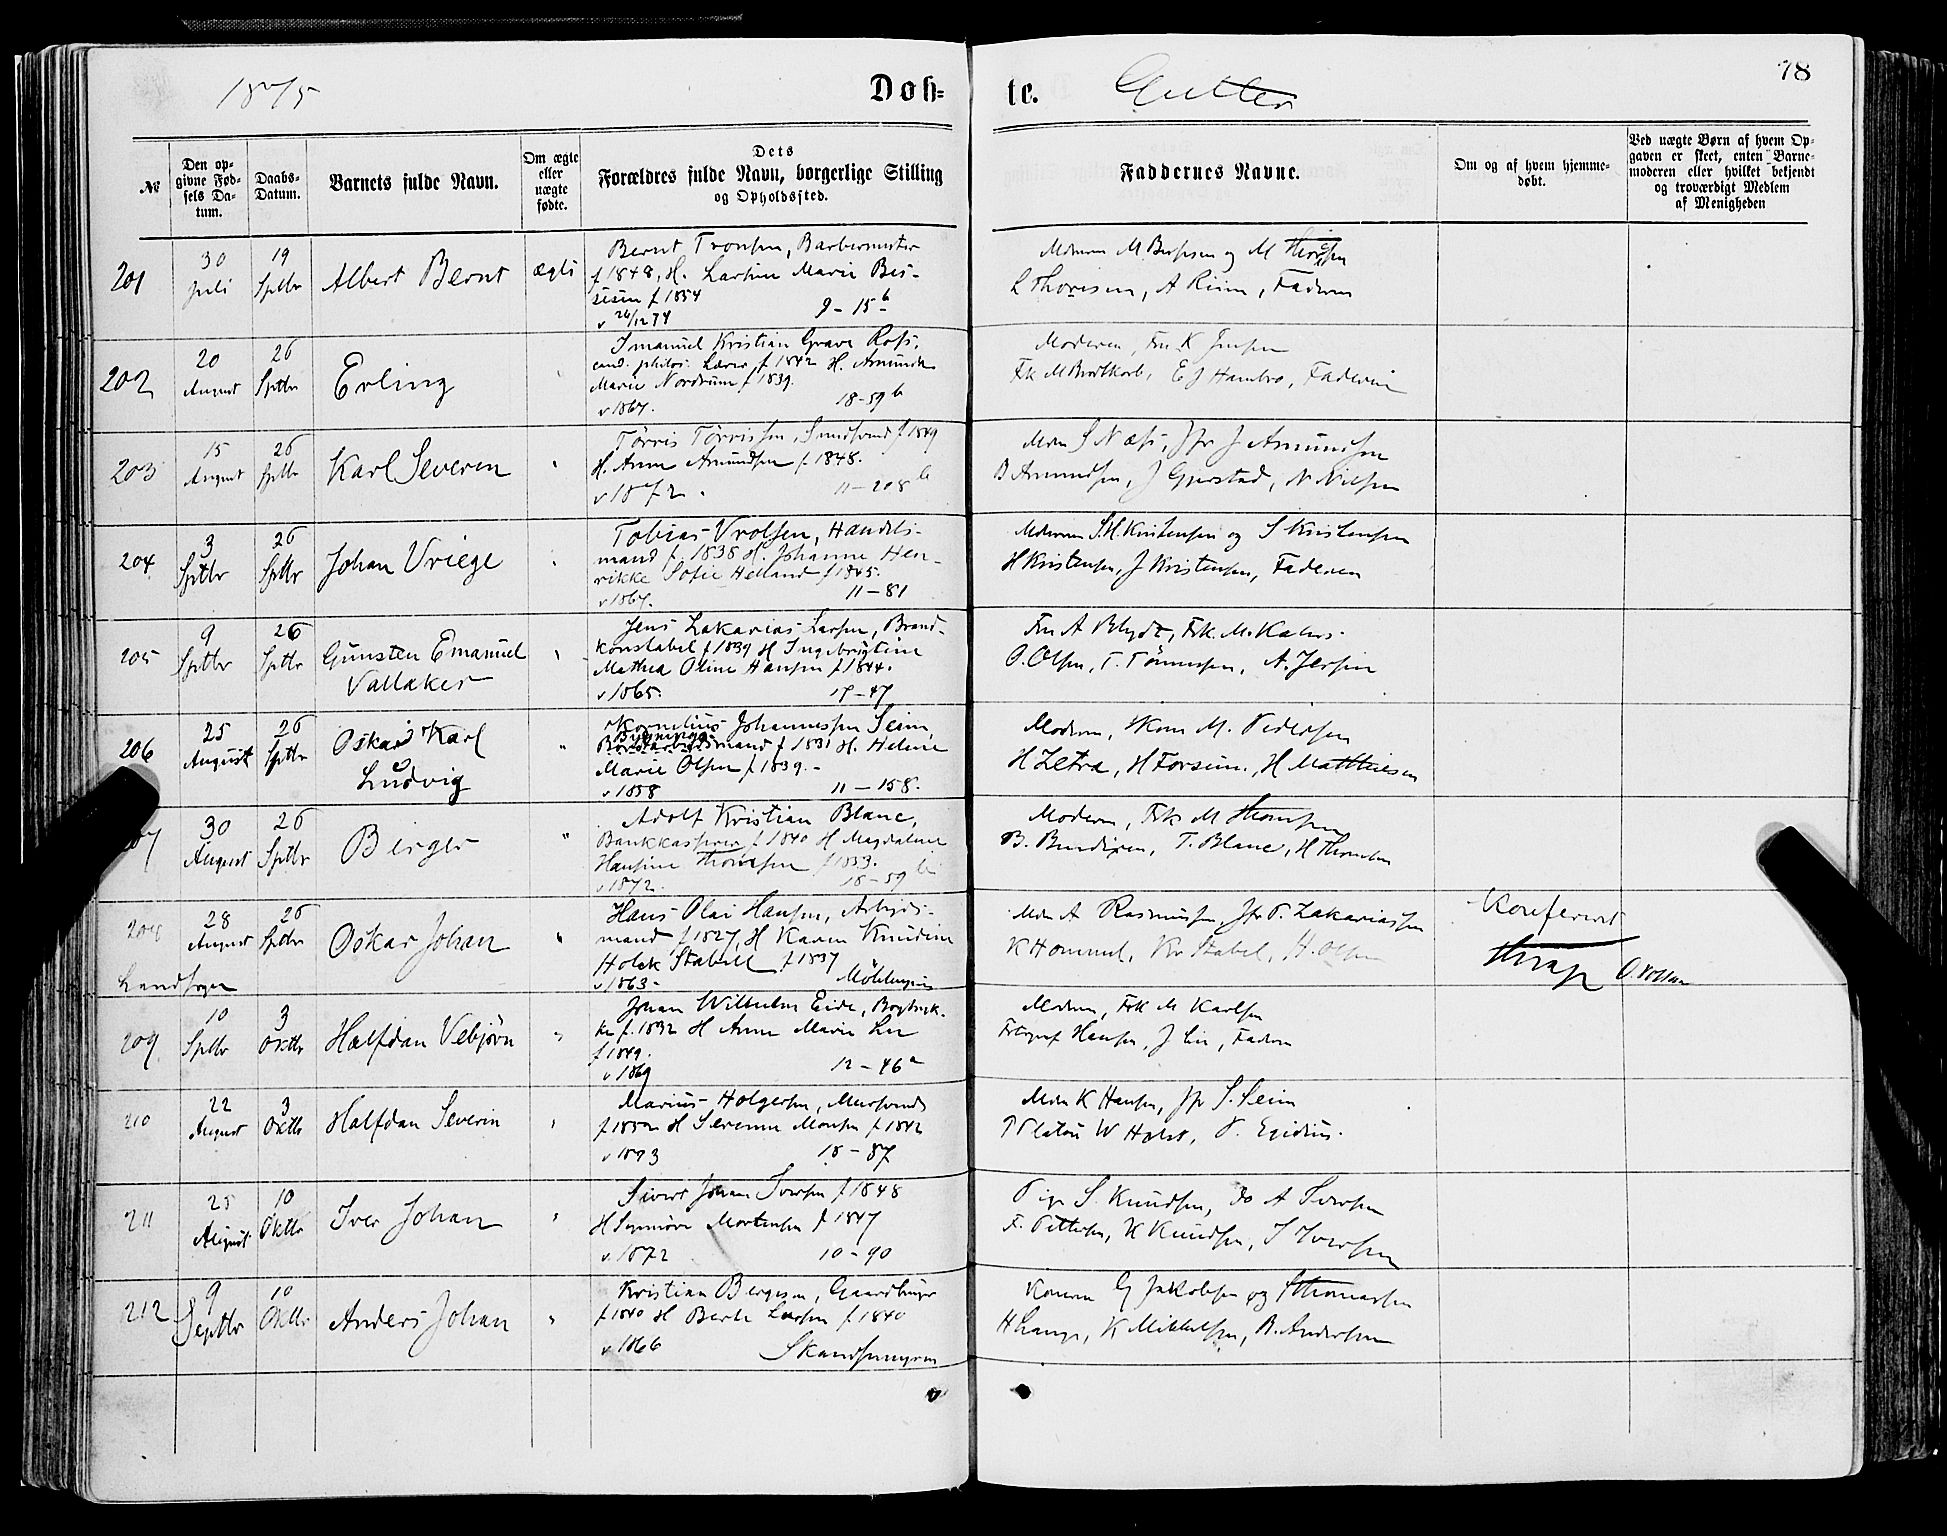 1875
Døb=
te.
Gutter
78
No
Den op-
givne Fød-
sels Da-
tum.
Daabs-
Datum.
Barnets fulde Navn.
Om ægte
eller
uægte
fødte.
Dets
Forældres fulde Navn, borgerlige Stilling
og Opholdssted.
Faddernes Navne.
Om og af hvem hjemme-
døbt.
Ved uægte Børn af hvem Op-
gaven er skeet, enten Barne-
moderen eller hvilket bekjendt
og troværdigt Medlem
af Menigheden
201
30
juli
19
Sptbr
Albert Bernt
ægte
Bernt Tronsen, Barbermester
f 1848, H. Larsine Marie Bes-
sesen f 1854
v 26/12 74 9 - 15 b
Moderen M. Bessesen og M Thoresen
L Thoresen, A Riim, Faderen
202
20
August
26
Sptbr
Erling
"
Imanuel Kristian Grave Ross,
cand. philos. Lærer f 1842 H. Amunda
Marie Nordrum f 1839.
v 1867. 18-59 b
Moderen, Fru K Jensen
Frk M Brodtkorb, E J Hambro, Faderen
203
15
August
26
Sptbr
Karl Severin
"
Tørris Tørrissen, f 1849
H. Anne Amundsen f. 1848.
v 1872. 11-208 b
Mdm S Næss, Jfr J Amundsen
B Amundsen, J Gjerstad, N Nilsen
204
3
Sptbr
26
Sptbr
Johan Vriege
"
Tobias Vrolsen, Handels-
mand f. 1838 H. Johanne Hen-
rikke Sofie Heiland f 1845.
v 1867. 11-81
Moderen S.H. Kristensen og S Kristensen
H Kristensen, J Kristensen, Faderen
205
9
Sptbr
26
Sptbr
Gunsten Emanuel
Vallaker
"
Jens Zakarias Larsen, Brand-
konstabel f 1839 H Ingebrigtine
Mathea Oline Hansen f 1844.
v 1865. 17-47
Fru A Blydt, Frk. M. Kahrs.
O. Olsen, T. Tønnesen, A. Jersin
206
25
August
26
Sptbr
Oskar Karl
Ludvig
"
Kornelius Johannessen Seim,
Bygnings
mand f 1831 H. Helene
Marie Olsen f 1839.-
v 1858 11-158.
Moderen, Kone M. Pedersen
H Zetra, H Forsum, H Matthiesen
30
August
26
Sptbr
Birger
"
Adolf Kristian Blanc,
Bankkasserer f 1840 H Magdalene
Hansine Thomsen f 1853.
v 1872. 18-59 b
Moderen, Frk M Thomsen
B. Bendixen, T. Blanc, H Thomsen
208
28
August
Landsogn
26
Sptbr
Oskar Johan
"
Hans Olai Hansen, Arbeids-
mand f 1827, H Karen Knudine
Holck Stabell f 1837
v 1863-
Mdm A Rasmussen, Jfr P. Zakariassen
K Hommel, Kr Stabel, H. Olsen
Konfereret
209
10
Sptbr
3
Oktbr
Halfdan Vebjörn
"
Johan Wilhelm Eide, Bogtryk-
ker f. 1832 H Anne Marie Lie
f 1849.
v 1869 12-46 a
Moderen, Frk M Karlsen
Fotograf Hansen, J Lie, Faderen
210
22
August
3
Oktbr
Halfdan Severin
"
Marius Holgersen, Mursvend
f 1852 H Severine Monsen f 1842
v 1873 18-87
Mdm K Hansen, Jfr S. Seim
P Platou W Holst, P. Egidius.
211
25
August
10
Oktbr
Iver Johan
"
Sivert Johan Iversen f 1848
H Synnöve Mortensen f 1847
v. 1872 10-90
Pige S. Knudsen, do A Iversen
F. Pettersen, K Knudsen, S Iversen
212
9
Septbr
10
Oktbr
Anders Johan
"
Kristian Bergesen, Gaardbruger
f 1840 H Berte Larsen f 1840
v 1866
Konerne G Jakobsen og S Thomassen
H Lange, K Mikkelsen, B. Andersen